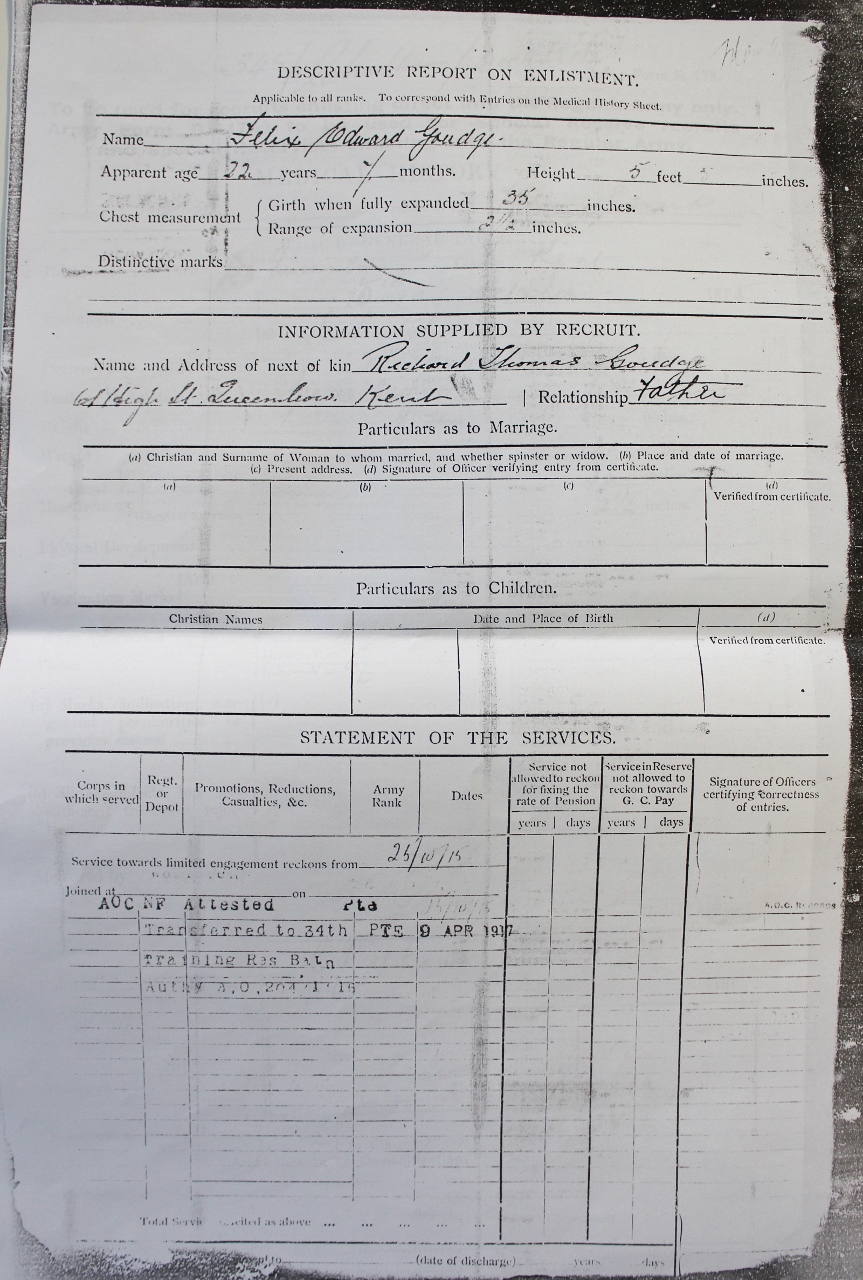 DESCRIPTIVE REPORT ON ENLISTMENT.
Applicable to all ranks. To correspond with Entries on the Medical History Sheet.
Name Felix Edward Goudge.
Apparent age 22 years 7 months. Height 5 feet inches.
Chest measurement { Girth when fully expanded 35 inches.
Range of expansion 2½ inches.
Distinctive marks
INFORMATION SUPPLIED BY RECRUIT.
Name and Address of next of kin Richard Thomas Goudge
High St. Kent | Relationship Father
Particulars as to Marriage.
(a) Christian and Surname of Woman to whom married, and whether spinster or widow. (b) Place and date of marriage.
(c) Present address. (d) Signature of Officer verifying entry from certificate.
(a) (b) (c) (d)
Verified from certificate.
Particulars as to Children.
Christian Names Date and Place of Birth (d)
Verified from certificate.
STATEMENT OF THE SERVICES.
Corps in which served
Regt. or Depot
Promotions, Reductions, Casualties, &c.
Army Rank
Dates
Service not allowed to reckon for fixing the rate of Pension
Service in Reserve not allowed to reckon towards G. C. Pay
Signature of Officers certifying correctness of entries.
years | days years | days
Service towards limited engagement reckons from 25/10/15
Joined at on
AOC NF Attested Pte
Transferred to 34th PTE 9 APR 1917
Training Res Batn
Authy A.O.
Total as above ... ... ... ...
to (date of discharge) years days